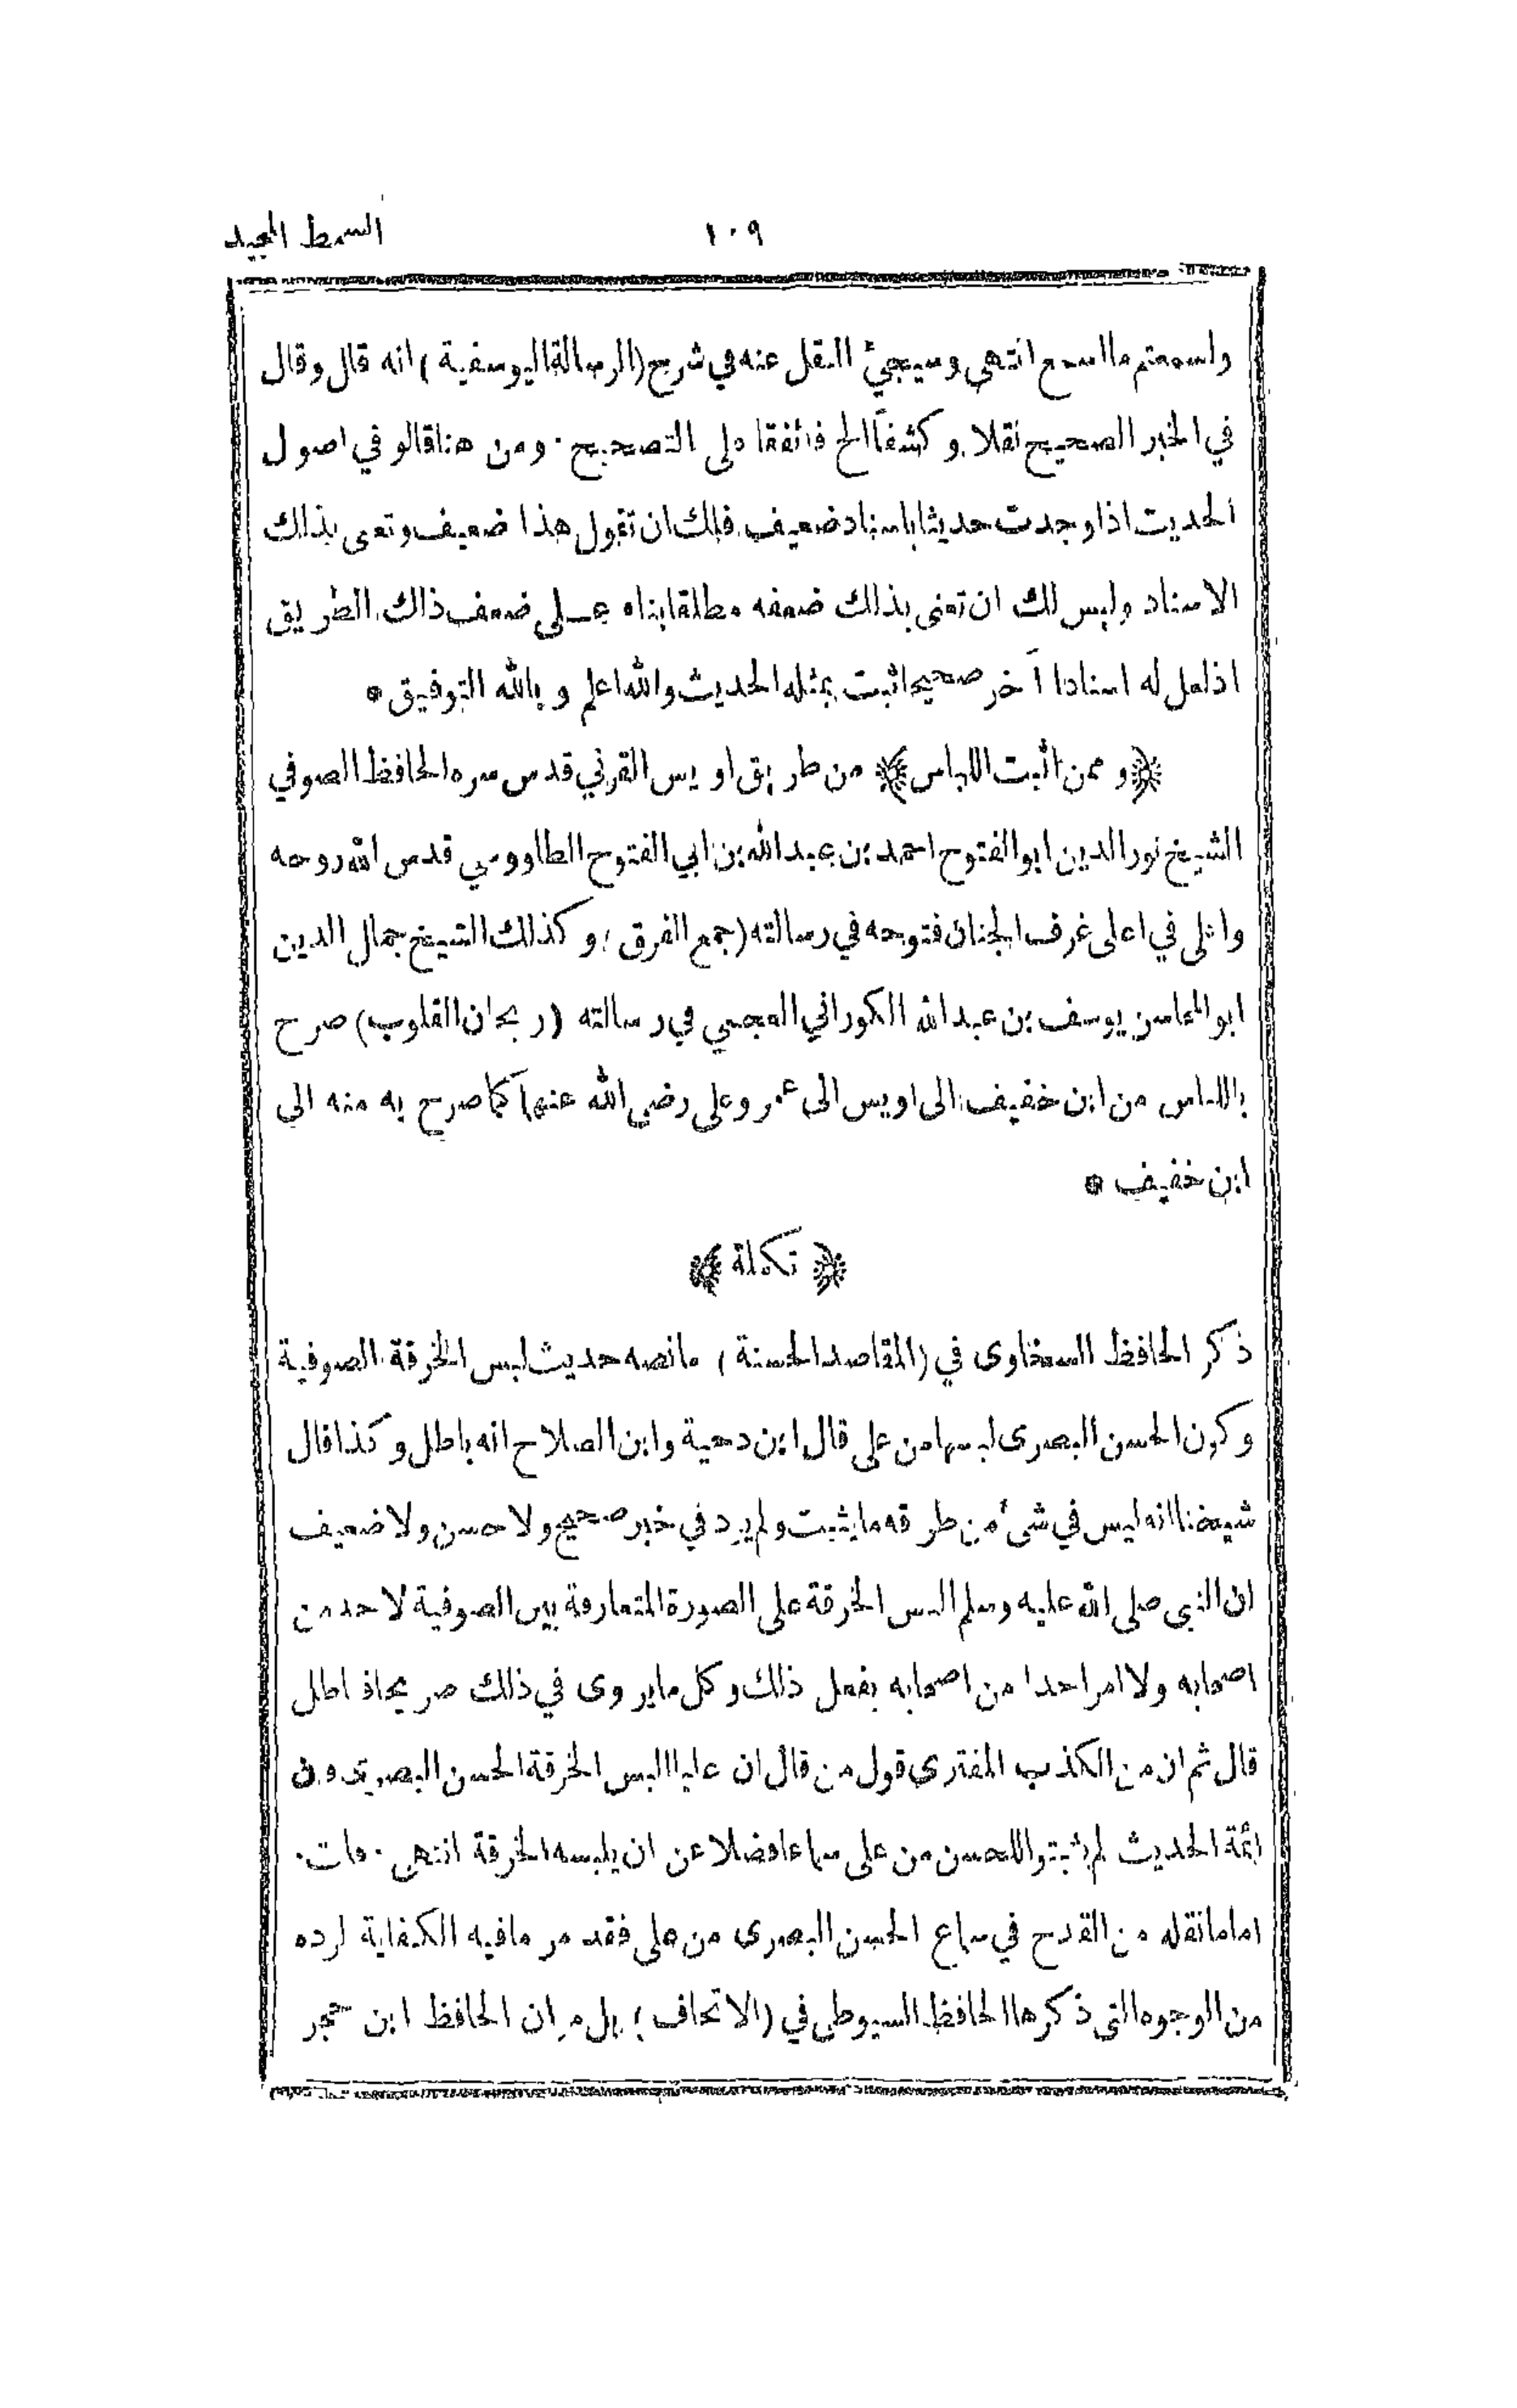 ١٠٩ السمط المجيد
ولسمعتم ما اسمع انتهى وسيجيُّ النقل عنه في شرح (الرسالة اليوسفية) انه قال وقال
في الخبر الصحيح نقلا و كشفاً الخ فاتفقا على التصحيح · ومن هنا قالو في اصول
الحديث اذا وجدت حديثا باسناد ضعيف فلك ان تقول هذا ضعيف وتعنى بذلك
الاسناد وليس لك ان تعنى بذلك ضعفه مطلقا بناء عـلى ضعف ذاك الطريق
اذ لعل له اسنادا آخر صحيحا ثبت بمثله الحديث والله اعلم و بالله التوفيق *
﴿و ممن اثبت اللباس﴾ من طريق او يس القرني قدس سره الحافظ الصوفي
الشيخ نور الدين ابو الفتوح احمد بن عبد الله بن ابي الفتوح الطاووسي قدس الله روحه
في اعلى غرف الجنان فتوحه في رسالته (جمع الفرق) و كذلك الشيخ جمال الدين
ابو المحاسن يوسف بن عبد الله الكوراني العجمي في رسالته (ريحان القلوب) صرح
باللباس من ابن خفيف الى اويس الى عمر وعلى رضى الله عنهما كما صرح به منه الى
ابن خفيف *
﴿ تكملة ﴾
ذكر الحافظ السخاوى في (المقاصد الحسنة) ما نصه حديث لبس الخرقة الصوفية
و كون الحسن البصرى لبسها من على قال ابن دحية وابن الصلاح انه باطل و كذا قال
شيخنا انه ليس في شئ من طرقه ما يثبت ولم يرد في خبر صحيح ولا حسن ولا ضعيف
ان النبى صلى الله عليه وسلم البس الخرقة على الصورة المتعارفة بين الصوفية لاحد من
اصحابه ولا امر احدا من اصحابه بفعل ذلك و كل ما ير وى في ذلك صريحا فباطل
قال ثم ان من الكذب المفترى قول من قال ان عليا البس الخرقة الحسن البصرى فان
ائمة الحديث لم يثبتوا للحسن من على سماعا فضلا عن ان يلبسه الخرقة انتهى · قلت ·
اما ما نقله من القدح في سماع الحسن البصرى من على فقد مر ما فيه الكفاية لرده
من الوجوه التى ذكرها الحافظ السيوطى في (الاتحاف) بل مر ان الحافظ ابن حجر